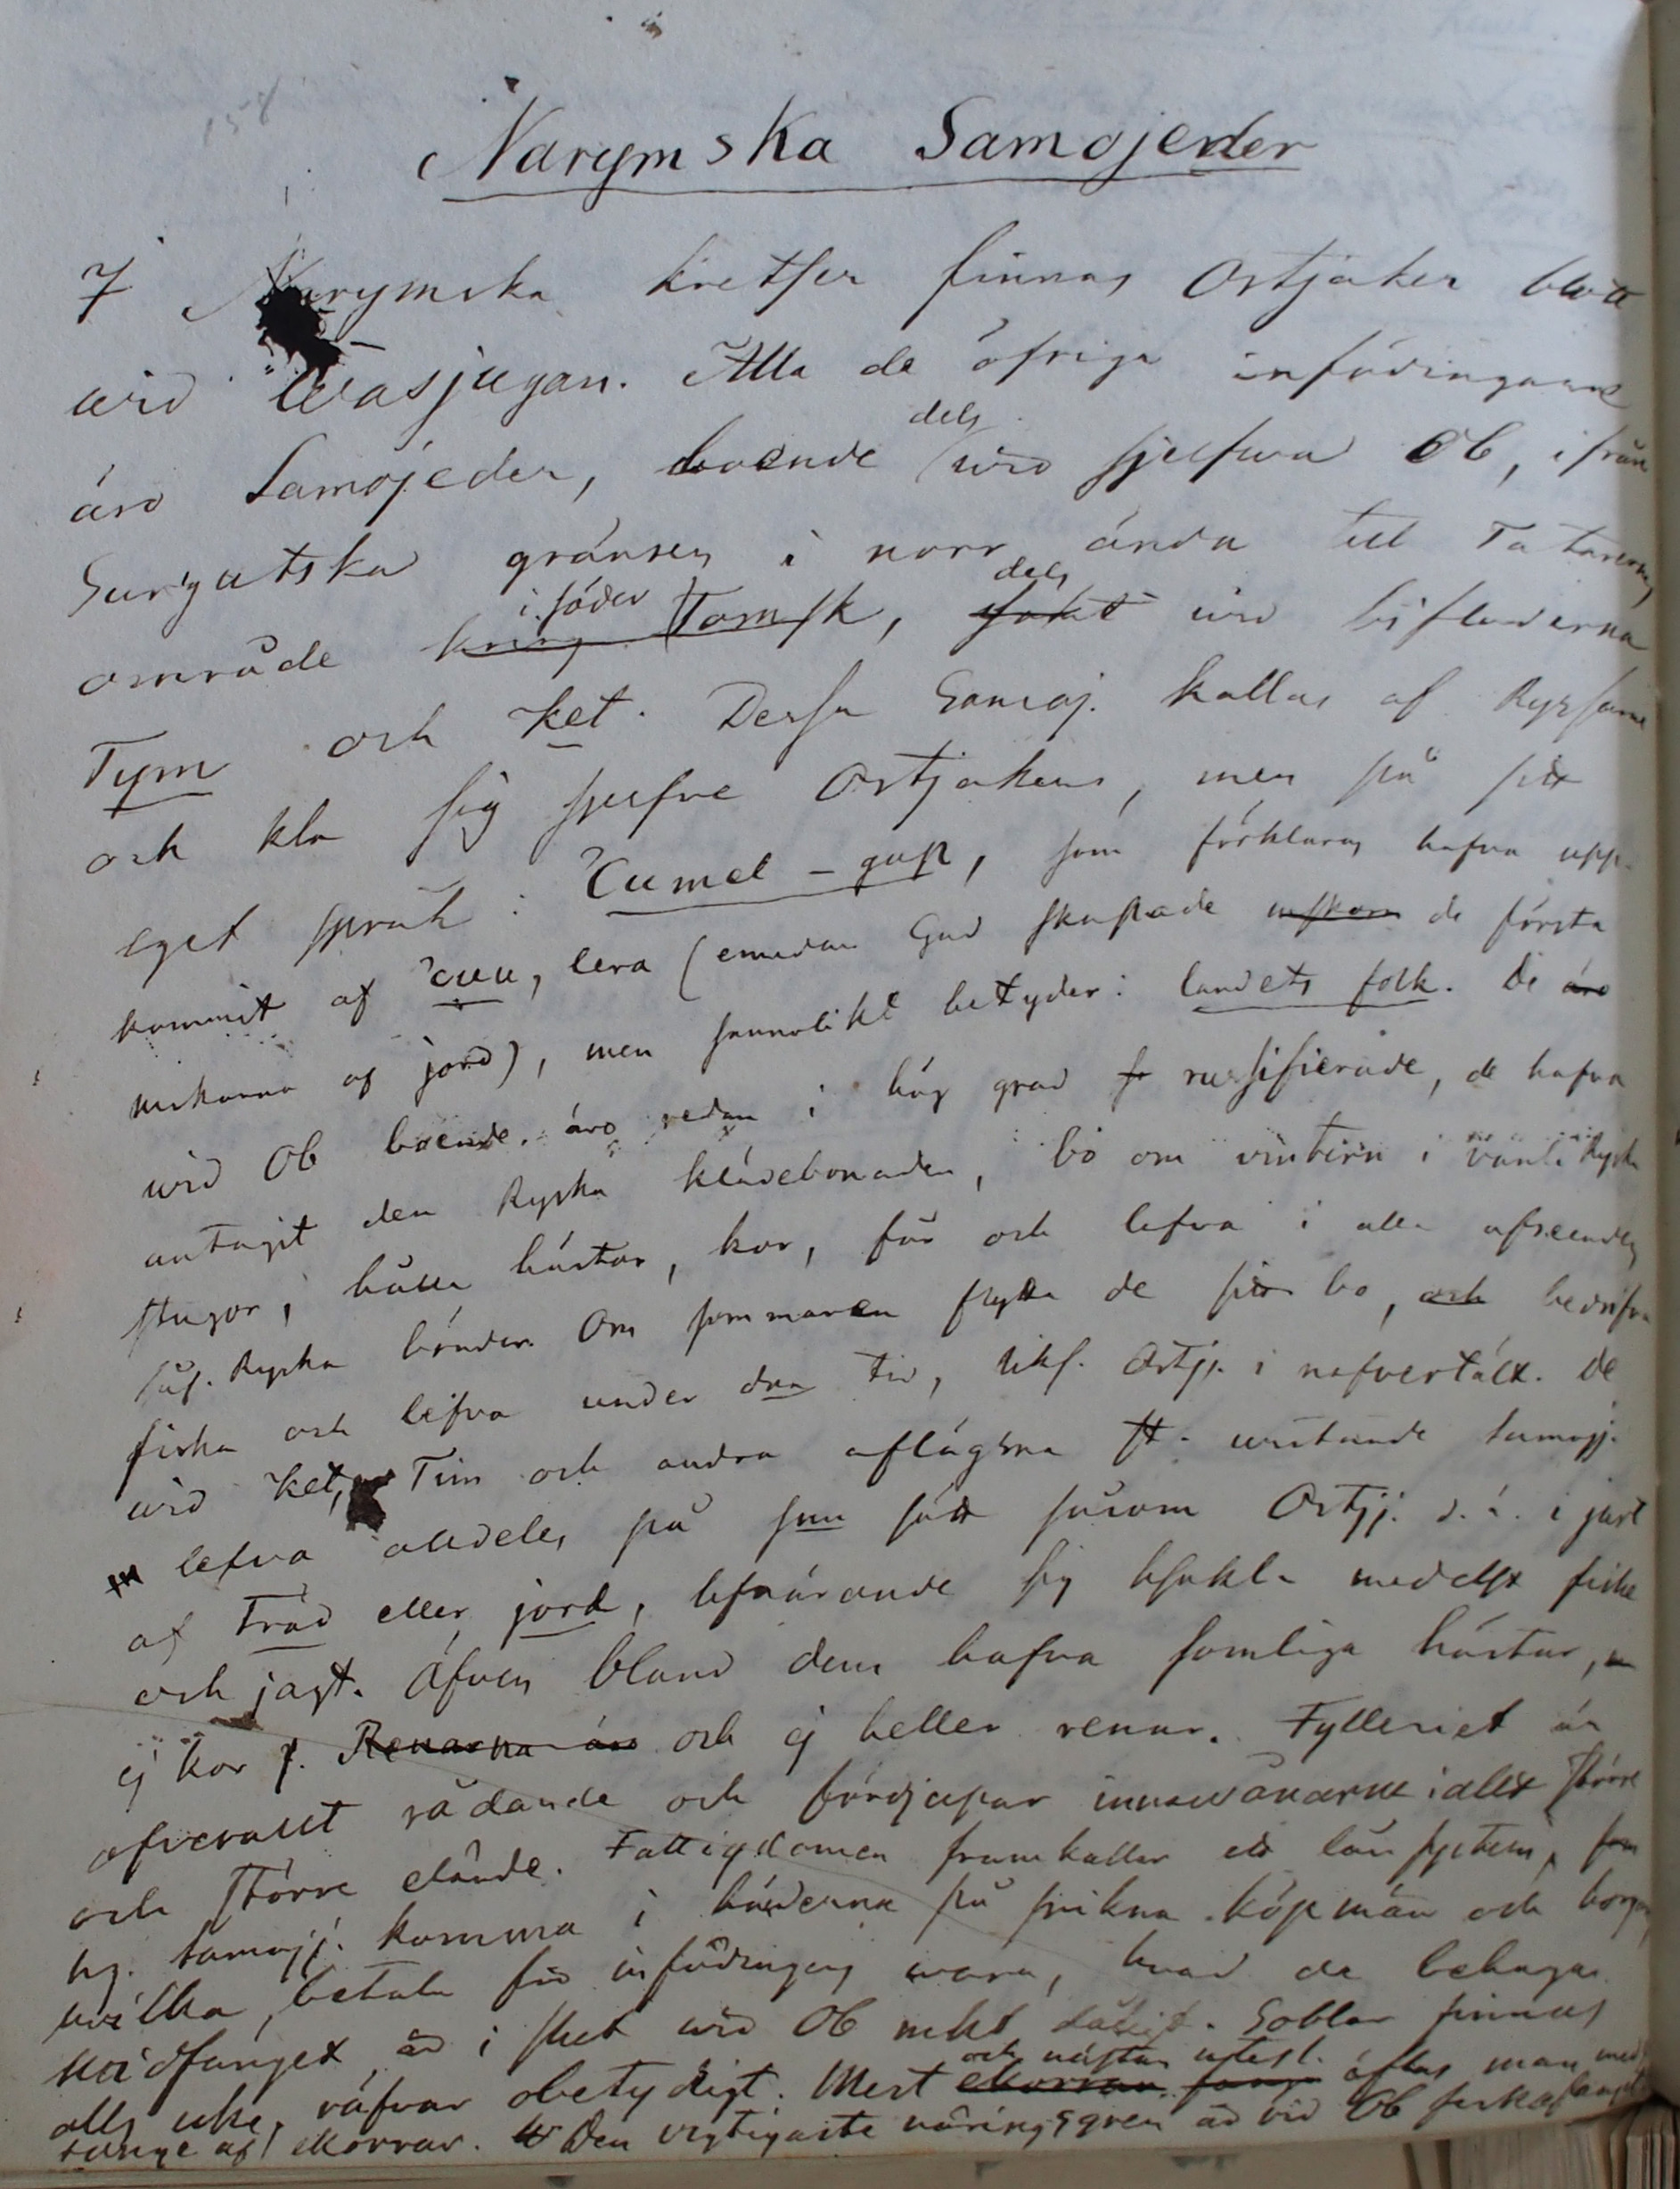 158
Narymska Samojeder
I Narymska kretsen finnas Ostjaker blott
vid Wasjugan. Alla de öfriga infödingarne
äro Samojeder, boende dels vid sjelfva Ob, ifrån
Surgutska gränsen i norr ända till Tatarernes
område kring Tomsk i söder, dels vid bifloderna
Tym och Ket. Dessa Samoj. kallas af Ryssarne
och kla sig sjelfve Ostjaker, men på sitt
eget språk: Tumel-gup, som förklaras hafva upp-
kommit af, lera (emedan Gud skapade de första
mskorna af jord), men sannolikt betyder: landets folk. De äro
vid Ob boende äro redan i hög grad russifierade, de hafva
antagit den Ryska klädebonaden, bo om vintern i vanl. Ryska
stugor, hålla hästar, kor, får och lefva i alla afseenden
sås. Ryska bönder. Om sommaren flytta de sitt bo, och bedrifva
fiska och lefva under dna tid, liks. Ostjj. i näfvertält. De
vid Ket, Tim och andra aflägsna st. vistande Samojj.
lefva alldeles på smu sätt såsom Ostjj. d. ä. i jurt
af träd eller jord, lifnärande sig medelst fiske
och jagt. Äfven bland dem hafva somliga hästar,
ej kor f. Renarna äro och ej heller renar. Fylleriet är
öfverallt rådande och fördjupar innevånarne i allt större
och större elände. Fattigdomen framkallar ett lånsystem,
hg. Samojj. komma i händerna på snikna köpmän och borgare
hvilka betala för infödingens vara, hvad de behaga.
Villfånget är i sht vid Ob mkt dåligt. Soblar finnas
alls icke, räfvar obetydligt. Mest ekorrar fånga och nästan utesl. öflas man med
fånge af ekorrar. Den vigtigaste näringsgren är vid Ob fiskafänget